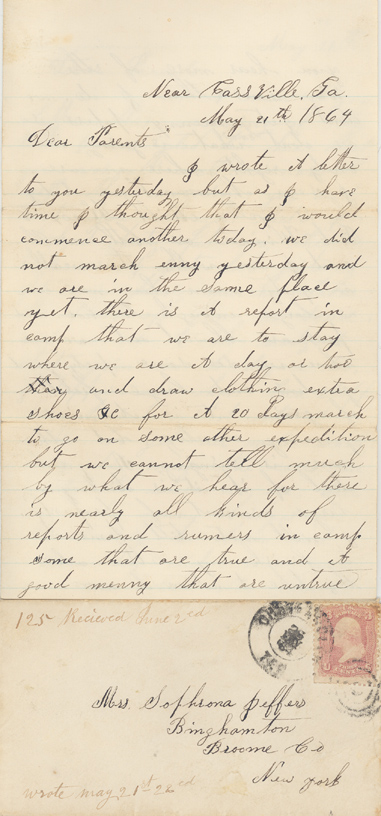 Near Cass Ville, Ga.
May 21th 1864
Dear Parents
I wrote A letter
to you yesterday but as I have
time I thought that I would
commence another today. we did
not march enny yesterday and
we are in the same place
yet. there is A report in
camp that we are to stay
where we are A day or two
and draw clothin extra
shoes &C for A 20 Days march
to go on some other expedition
but we cannot tell much
by what we hear for there
is nearly all kinds of
reports and rumers in camp
some that are true and A
good menny that are untrue
125 Recieved June 2ed
Mrs. Sophrona Jeffers
Binghamton
Broome Co
New york
wrote may 21st 22ed